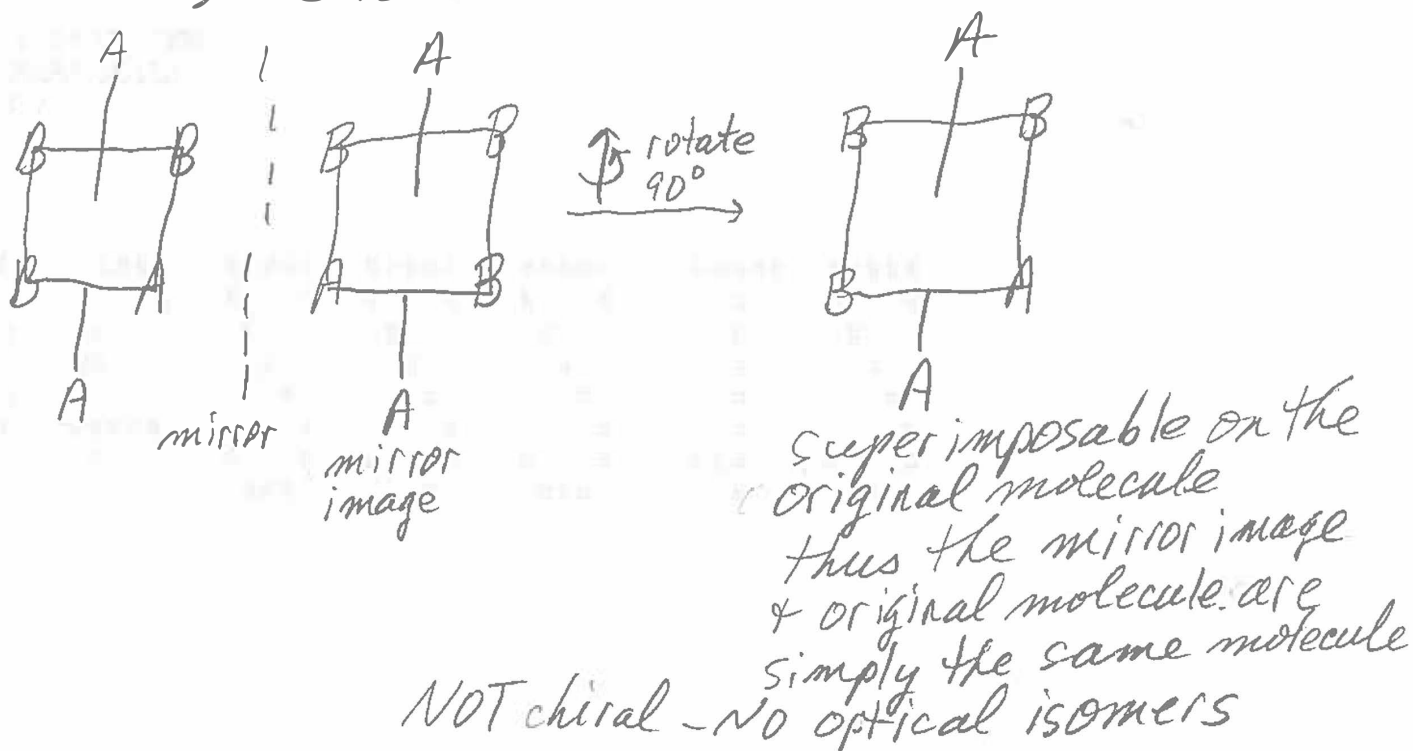 A
A
A
B B
B B
rotate
90°
B B
B A
A B
B A
A
A
A
mirror
mirror
image
superimposable on the
original molecule
thus the mirror image
& original molecule are
simply the same molecule
NOT chiral - No optical isomers